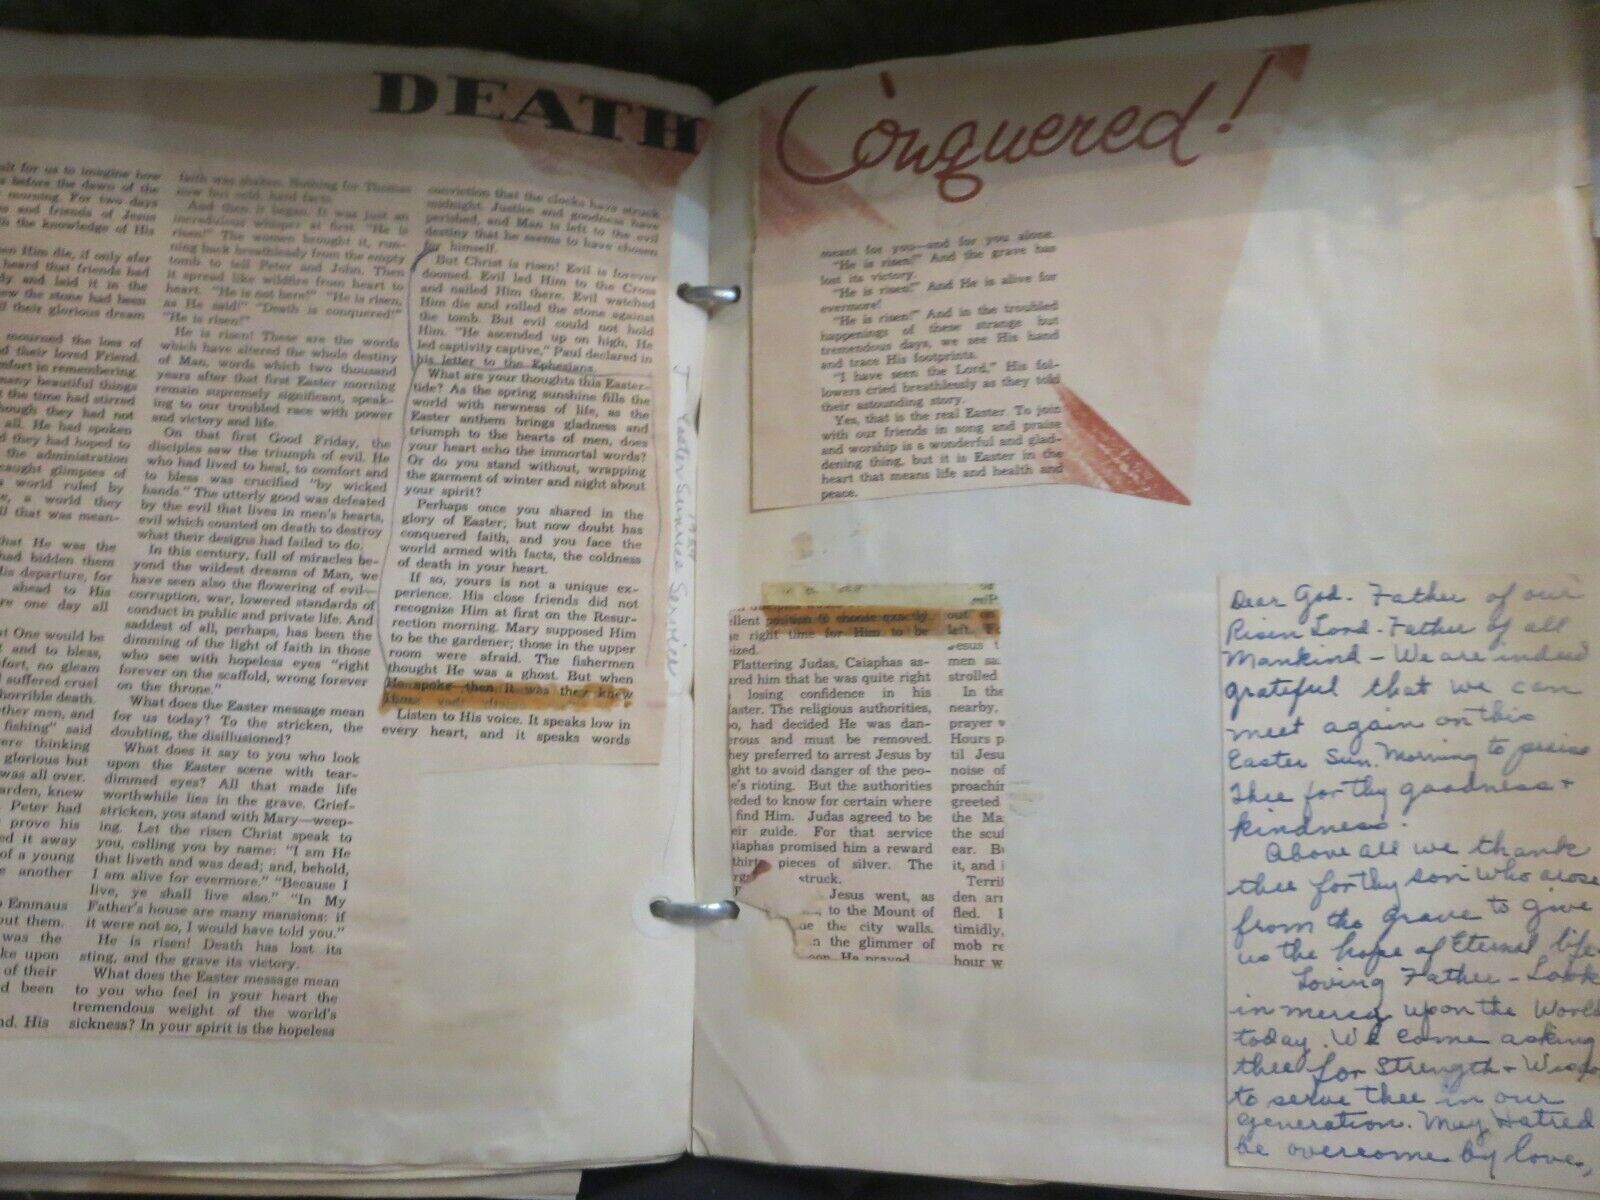 DEATH
Conquered!
ait for us to imagine how
s before the dawn of the
morning. For two days
es and friends of Jesus
the knowledge of His
en Him die, if only afar
heard that friends had
dy and laid it in the
ew the stone had been
their glorious dream
mourned the loss of
d their loved Friend.
mfort in remembering
many beautiful things
g the time had stirred
hough they had not
all. He had spoken
d they had hoped to
the administration
caught glimpses of
world ruled by
e, a world they
ll that was mean-
that He was the
had bidden them
His departure, for
ahead to His
re one day all
t One would be
and to bless,
fort, no gleam
suffered cruel
horrible death.
other men, and
fishing" said
ere thinking
glorious but
was all over.
arden, knew
Peter had
prove his
ed it away
of a young
e another
Emmaus
out them.
was the
ke upon
of their
d been
nd. His
faith was shaken. Nothing for Thomas
now but cold, hard facts.
And then it began. It was just an
incredulous whisper at first. "He is
risen!" The women brought it, run-
ning back breathlessly from the empty
tomb to tell Peter and John. Then
it spread like wildfire from heart to
heart. "He is not here!" "He is risen,
as He said!" "Death is conquered!"
"He is risen!"
He is risen! These are the words
which have altered the whole destiny
of Man, words which two thousand
years after that first Easter morning
remain supremely significant, speak-
ing to our troubled race with power
and victory and life.
On that first Good Friday, the
disciples saw the triumph of evil. He
who had lived to heal, to comfort and
to bless was crucified "by wicked
hands." The utterly good was defeated
by the evil that lives in men's hearts,
evil which counted on death to destroy
what their designs had failed to do.
In this century, full of miracles be-
yond the wildest dreams of Man, we
have seen also the flowering of evil—
corruption, war, lowered standards of
conduct in public and private life. And
saddest of all, perhaps, has been the
dimming of the light of faith in those
who see with hopeless eyes "right
forever on the scaffold, wrong forever
on the throne."
What does the Easter message mean
for us today? To the stricken, the
doubting, the disillusioned?
What does it say to you who look
upon the Easter scene with tear-
dimmed eyes? All that made life
worthwhile lies in the grave. Grief-
stricken, you stand with Mary—weep-
ing. Let the risen Christ speak to
you, calling you by name: "I am He
that liveth and was dead; and, behold,
I am alive for evermore." "Because I
live, ye shall live also." "In My
Father's house are many mansions: if
it were not so, I would have told you."
He is risen! Death has lost its
sting, and the grave its victory.
What does the Easter message mean
to you who feel in your heart the
tremendous weight of the world's
sickness? In your spirit is the hopeless
conviction that the clocks have struck
midnight. Justice and goodness have
perished, and Man is left to the evil
destiny that he seems to have chosen
for himself.
But Christ is risen! Evil is forever
doomed. Evil led Him to the Cross
and nailed Him there. Evil watched
Him die and rolled the stone against
the tomb. But evil could not hold
Him. "He ascended up on high, He
led captivity captive," Paul declared in
his letter to the Ephesians.
What are your thoughts this Easter-
tide? As the spring sunshine fills the
world with newness of life, as the
Easter anthem brings gladness and
triumph to the hearts of men, does
your heart echo the immortal words?
Or do you stand without, wrapping
the garment of winter and night about
your spirit?
Perhaps once you shared in the
glory of Easter; but now doubt has
conquered faith, and you face the
world armed with facts, the coldness
of death in your heart.
If so, yours is not a unique ex-
perience. His close friends did not
recognize Him at first on the Resur-
rection morning. Mary supposed Him
to be the gardener; those in the upper
room were afraid. The fishermen
thought He was a ghost. But when
He spoke then it was they knew
Listen to His voice. It speaks low in
every heart, and it speaks words
Easter Sunrise Service
meant for you—and for you alone.
"He is risen!" And the grave has
lost its victory.
"He is risen!" And He is alive for
evermore!
"He is risen!" And in the troubled
happenings of these strange but
tremendous days, we see His hand
and trace His footprints.
"I have seen the Lord," His fol-
lowers cried breathlessly as they told
their astounding story.
Yes, that is the real Easter. To join
with our friends in song and praise
and worship is a wonderful and glad-
dening thing, but it is Easter in the
heart that means life and health and
peace.
ellent position to choose exactly
e right time for Him to be
eized.
Flattering Judas, Caiaphas as-
ured him that he was quite right
losing confidence in his
aster. The religious authorities,
o, had decided He was dan-
erous and must be removed.
hey preferred to arrest Jesus by
ght to avoid danger of the peo-
e's rioting. But the authorities
eded to know for certain where
find Him. Judas agreed to be
eir guide. For that service
aiaphas promised him a reward
thirty pieces of silver. The
struck.
Jesus went, as
to the Mount of
he the city walls.
n the glimmer of
oon. He prayed
out on
left. Fo
Jesus t
men sa
strolled
In the
nearby,
prayer w
Hours p
til Jesu
noise of
proachin
greeted
the Ma
the scuf
ear. Bu
it, and i
Terrif
den arr
fled. I
timidly,
mob re
hour w
Dear God - Father of our
Risen Lord - Father of all
Mankind - We are indeed
grateful that we can
meet again on this
Easter Sun. Morning to praise
Thee for thy goodness +
kindness.
Above all we thank
thee for thy son who arose
from the grave to give
us the hope of Eternal life.
Loving Father - Look
in mercy upon the World
today. We come asking
thee for Strength +
to serve thee in our
generation. May Hatred
be overcome by love,